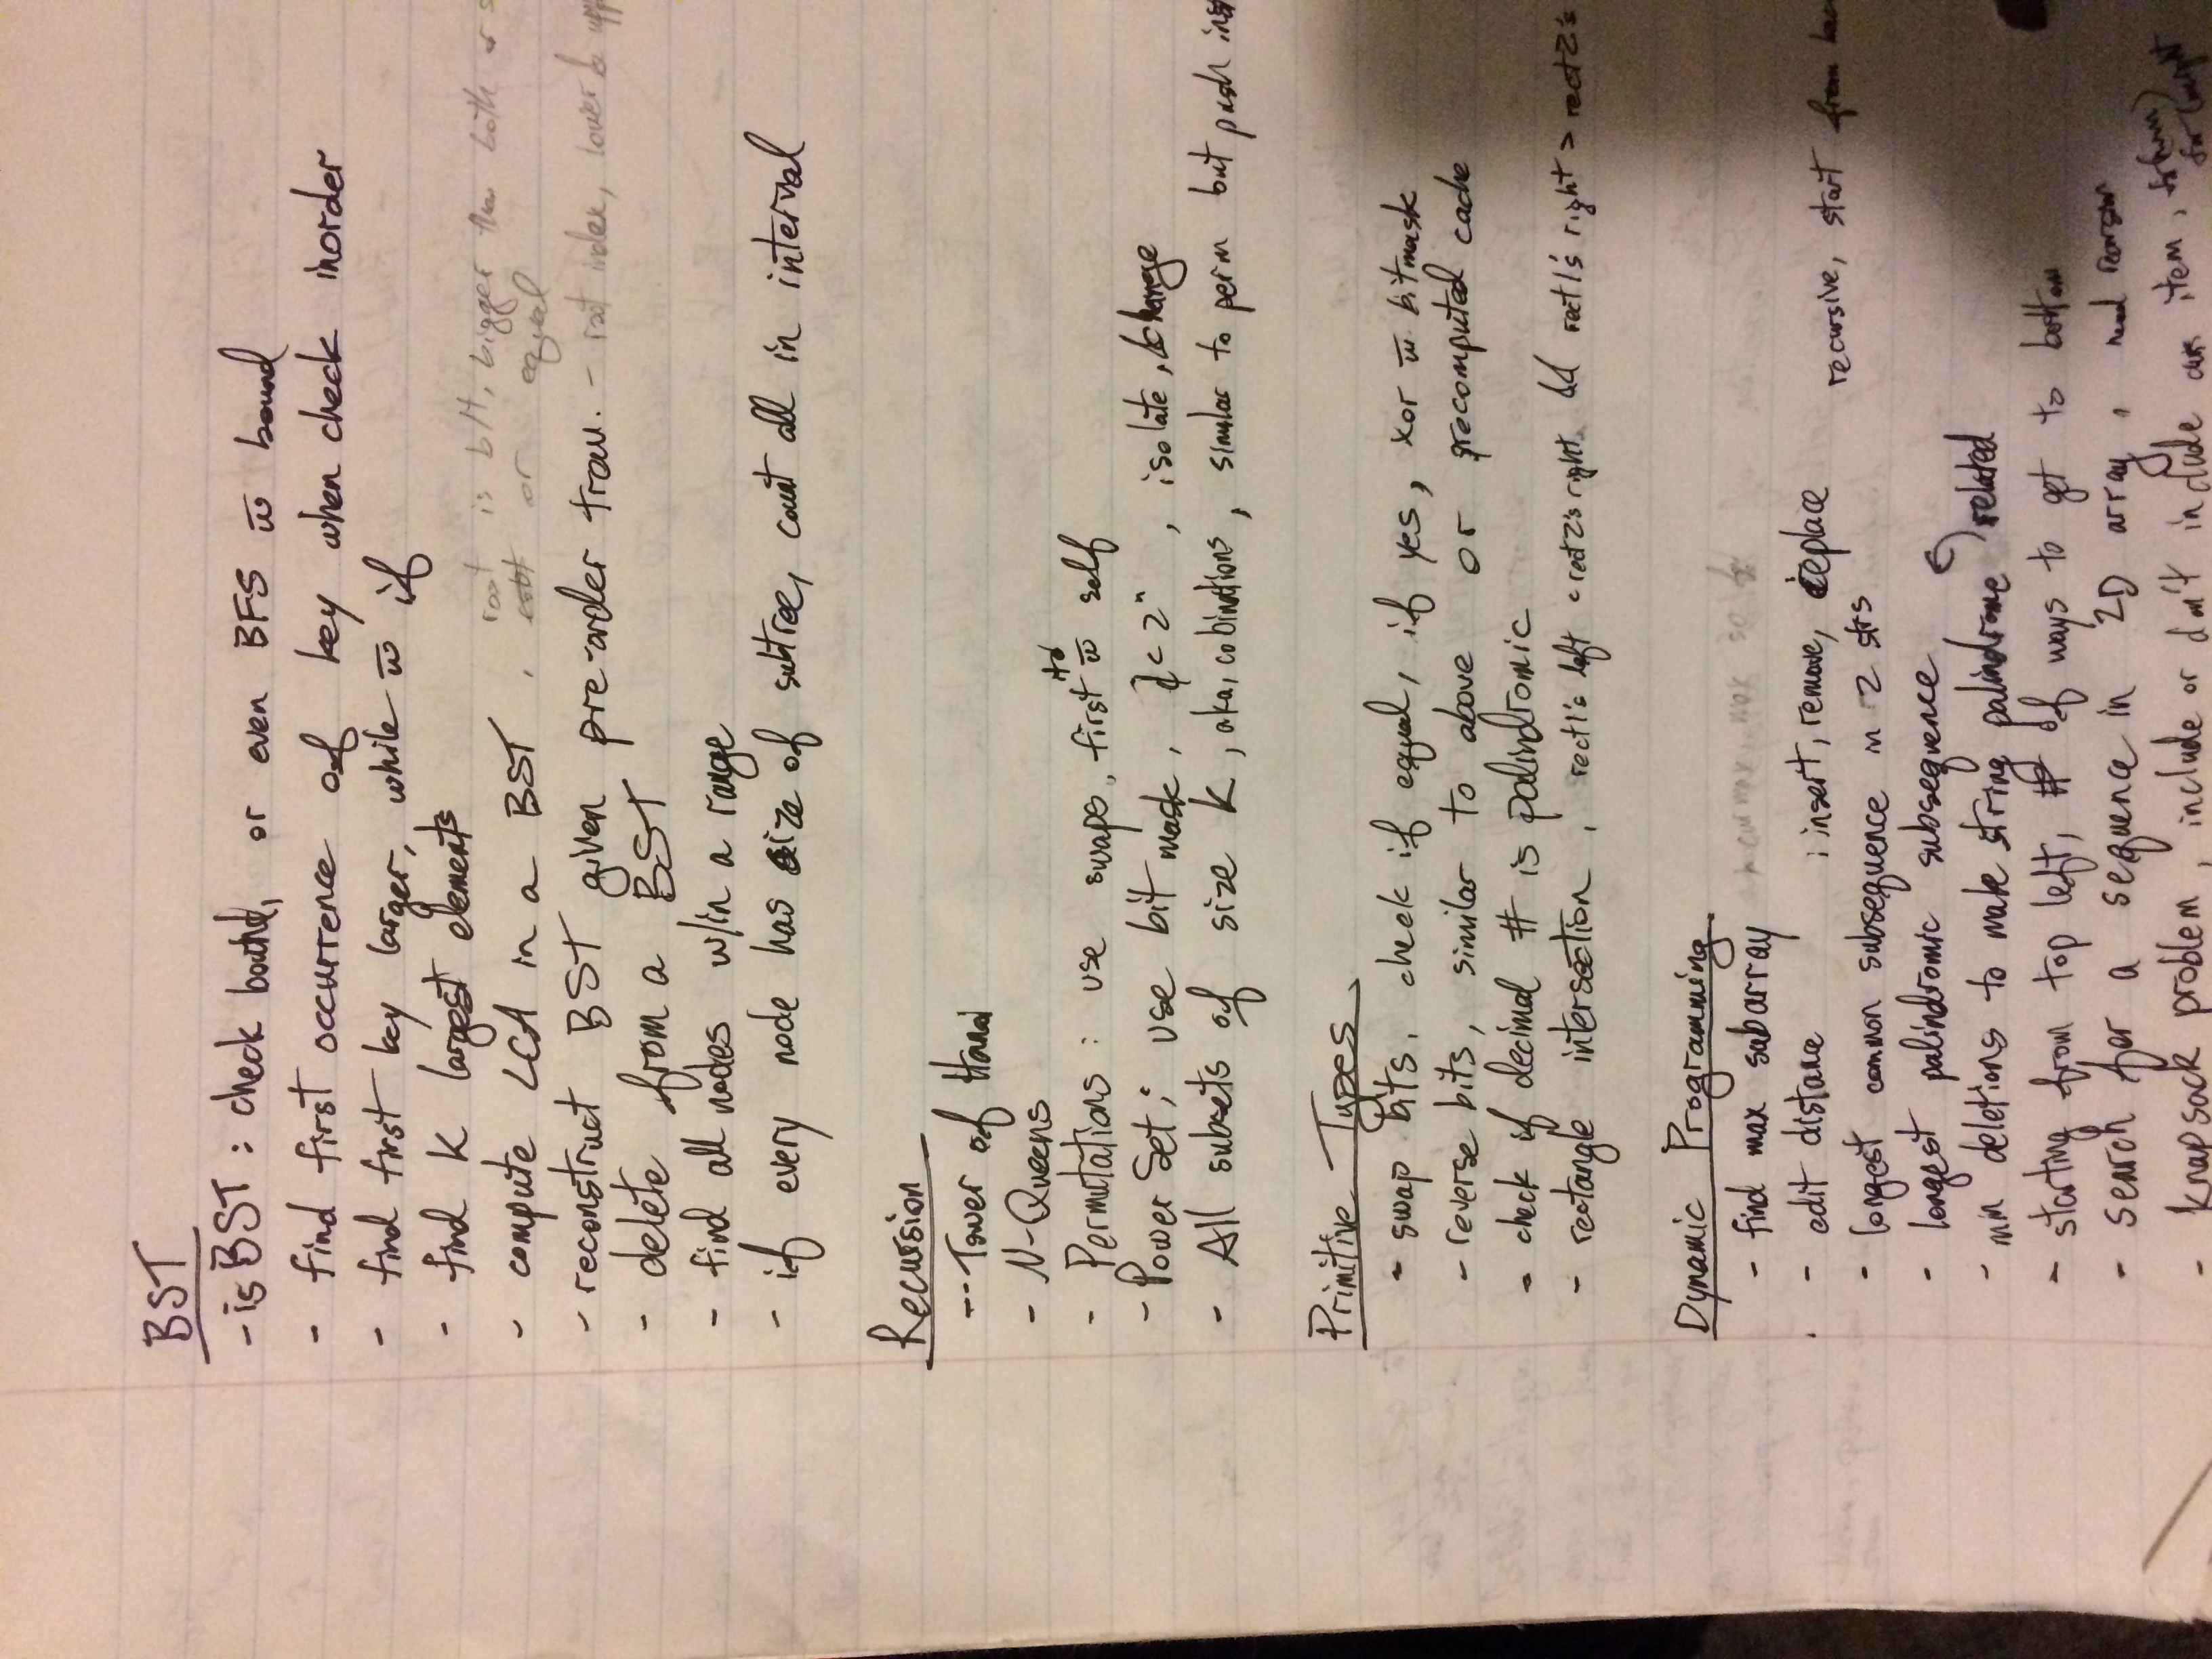 BST
- isBST : check bound, or even BFS w̄ bound
- find first occurrence of key when check inorder
- find first key larger, while w̄ if
- find K largest elements
root is b/t, bigger than both or s
- compute LCA in a BST , or equal
- reconstruct BST given pre-order trav. - root index, lower & upp
- delete from a BST
- find all nodes w/in a range
- if every node has size of subtree, count all in interval
Recursion
-- Tower of Hanoi
- N-Queens
- Permutations : use swaps, first w̄ self
- Power Set ; use bit mask, < 2ⁿ , isolate, change
- All subsets of size K, aka, cobinations, similar to perm but push inst
Primitive Types
- swap bits, check if equal, if yes, xor w̄ bitmask
- reverse bits, similar to above or precomputed cache
- check if decimal # is palindromic
- rectangle intersection , rect1's left < rect2's right && rect1's right > rect2's
Dynamic Programming
- find max subarray - cur max, max so far
- edit distance ; insert, remove, replace recursive, start from bac
- longest common subsequence in 2 strs
- longest palindromic subsequence
- min deletions to make string palindrome related
- starting from top left, # of ways to get to bottom
- search for a sequence in 2D array, need recursion
- knapsack problem, include or don't include item,